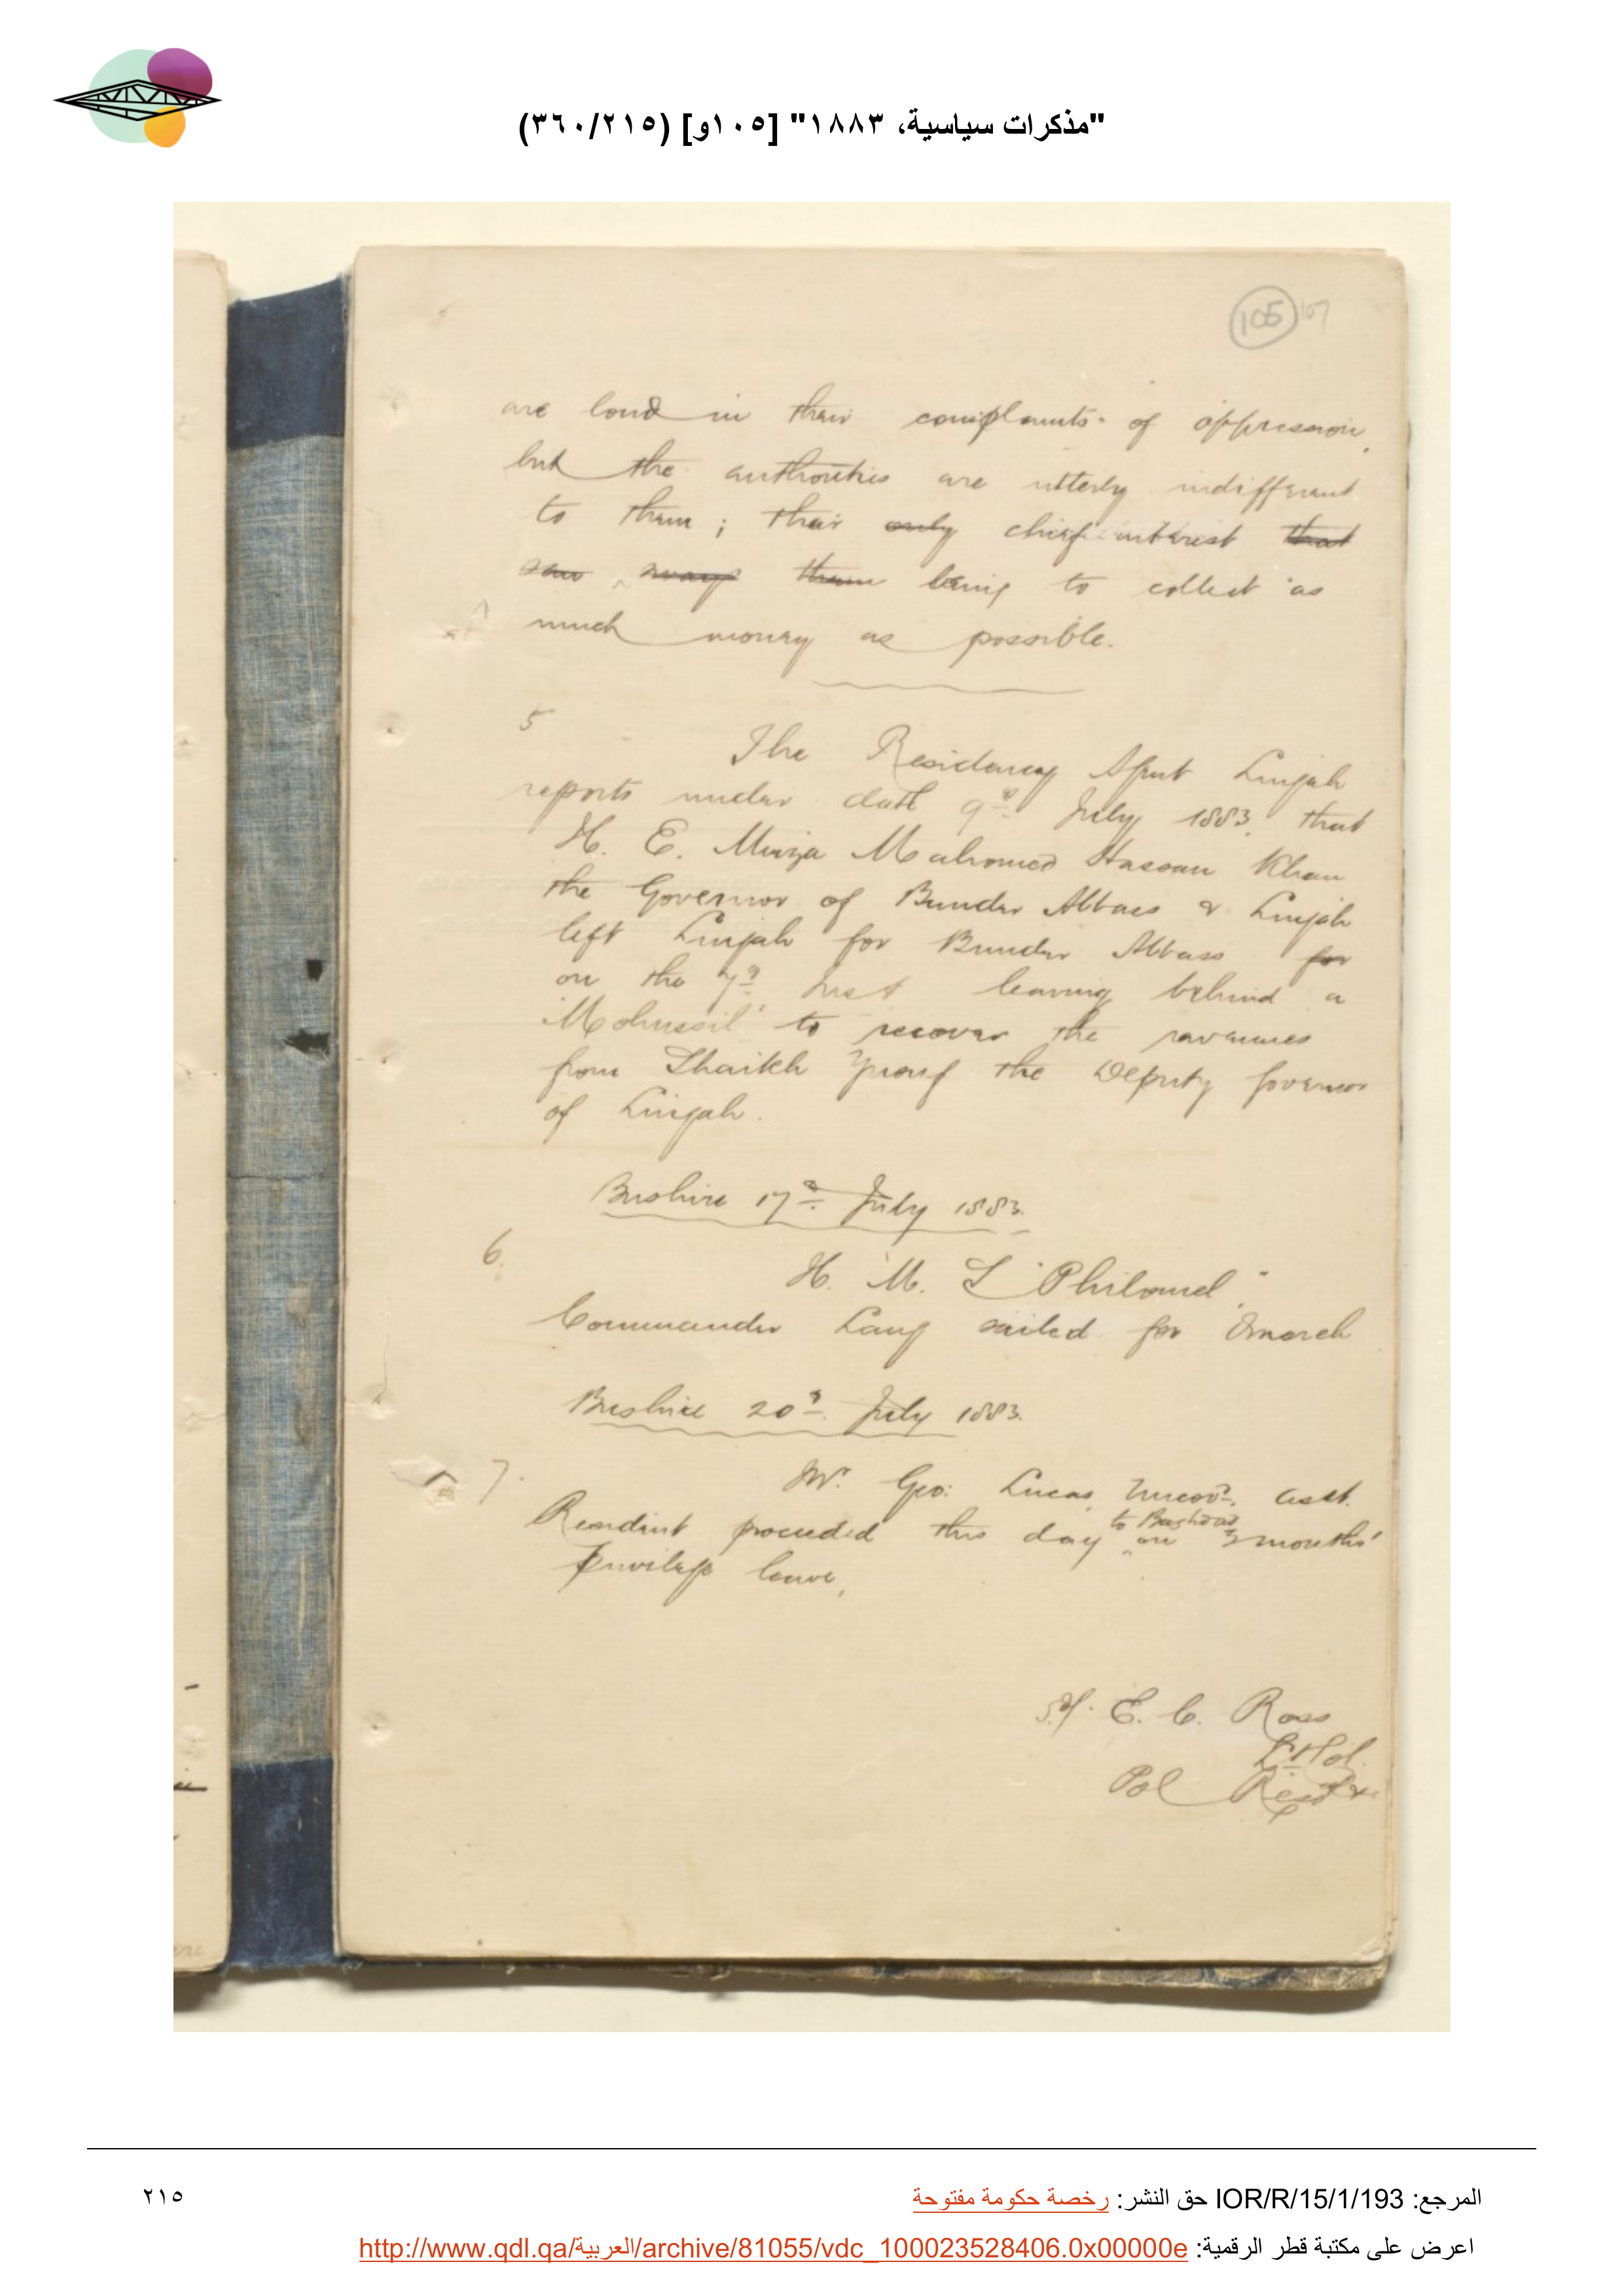 "مذكرات سياسية، ١٨٨٣" [١٠٥و] (٣٦٠/٢١٥)
105 107
are loud in their complaints of oppression,
but the authorities are utterly indifferent
to them; their only chief interest that
sways them being to collect as
much money as possible.
5
The Residency Agent Lingah
reports under date 9th July 1883, that
H. E. Mirza Mahomed Hassan Khan
the Governor of Bunder Abbass & Lingah
left Lingah for Bunder Abbass for
on the 7th inst leaving behind a
'Mohussil' to recover the revenues
from Shaikh Yusuf the Deputy Governor
of Lingah.
Bushire 17th July 1883.
6.
H. M. S "Philomel,"
Commander Lang sailed for Amarah
Bushire 20th July 1883.
7.
Mr. Geo: Lucas, Uncovd. Asst.
to Baghdad
Resident proceeded this day on 3 months'
privilege leave,
Sd/. E. C. Ross
Lt Col.
Pol Resdt
المرجع: IOR/R/15/1/193 حق النشر: رخصة حكومة مفتوحة
٢١٥
اعرض على مكتبة قطر الرقمية: http://www.qdl.qa/العربية/archive/81055/vdc_100023528406.0x00000e